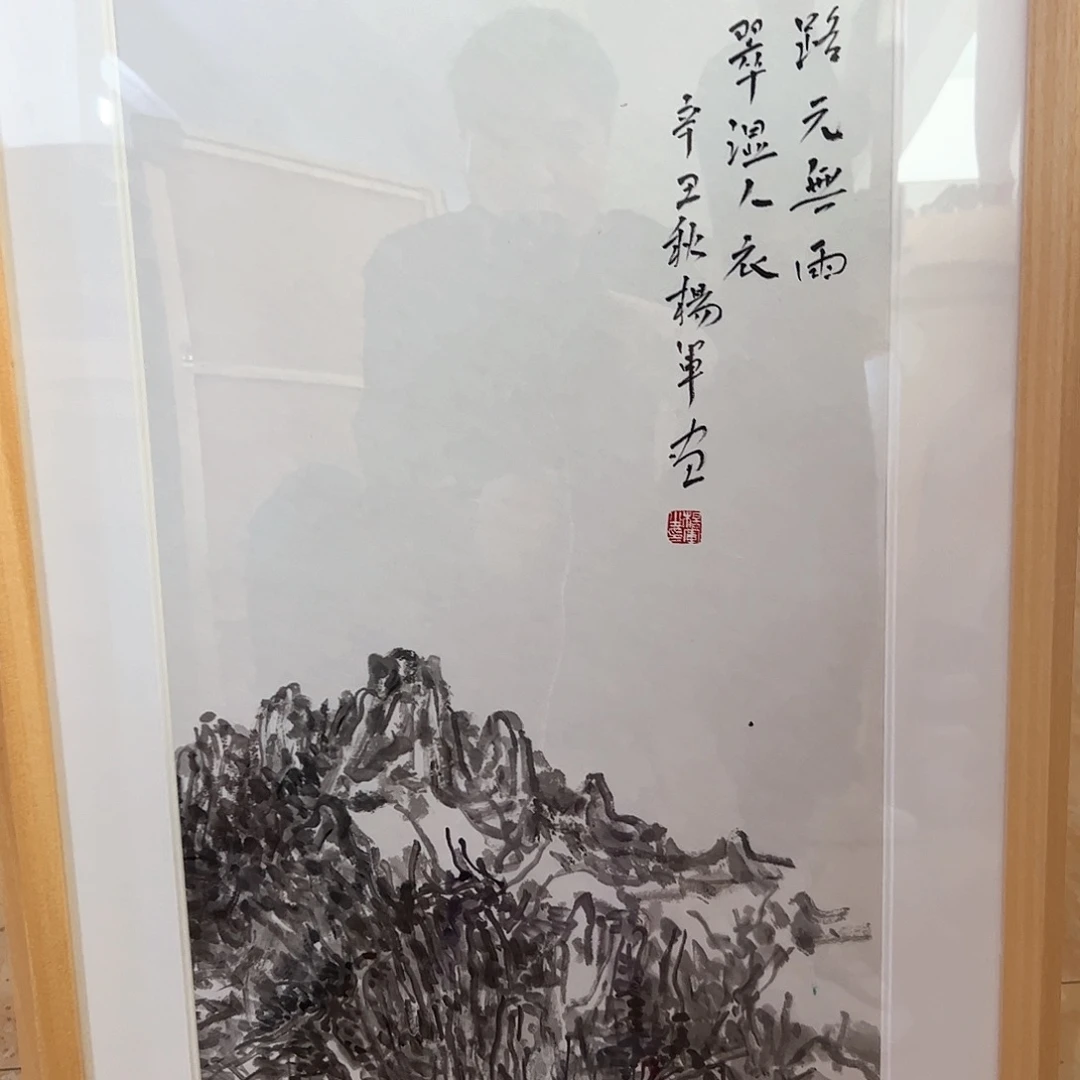 路元無雨
翠湿人衣
辛丑秋楊軍画